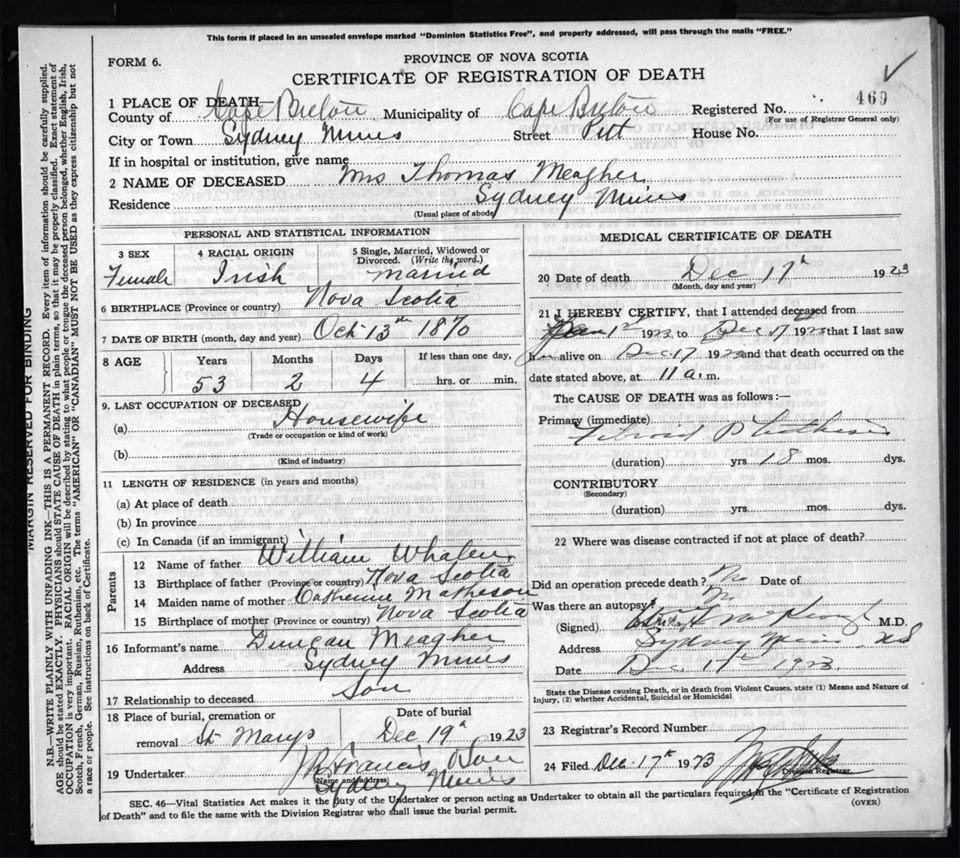 This form if placed in an unsealed envelope marked "Dominion Statistics Free", and properly addressed, will pass through the mails "FREE."
FORM 6.
PROVINCE OF NOVA SCOTIA
CERTIFICATE OF REGISTRATION OF DEATH
469
1 PLACE OF DEATH—
County of Cape Breton Municipality of Cape Breton Registered No.
(For use of Registrar General only)
City or Town Sydney Mines Street Pitt House No.
If in hospital or institution, give name
2 NAME OF DECEASED Mrs Thomas Meagher
Residence Sydney Mines
(Usual place of abode)
PERSONAL AND STATISTICAL INFORMATION
3 SEX 4 RACIAL ORIGIN 5 Single, Married, Widowed or Divorced. (Write the word.)
Female Irish married
6 BIRTHPLACE (Province or country) Nova Scotia
7 DATE OF BIRTH (month, day and year) Oct 13th 1870
8 AGE Years Months Days If less than one day,
53 2 4 hrs. or min.
9. LAST OCCUPATION OF DECEASED
(a) Housewife
(Trade or occupation or kind of work)
(b)
(Kind of industry)
11 LENGTH OF RESIDENCE (in years and months)
(a) At place of death
(b) In province
(c) In Canada (if an immigrant)
Parents
12 Name of father William Whalen
13 Birthplace of father (Province or country) Nova Scotia
14 Maiden name of mother Catherine Matheson
15 Birthplace of mother (Province or country) Nova Scotia
16 Informant's name Duncan Meagher
Address Sydney Mines
17 Relationship to deceased Son
18 Place of burial, cremation or Date of burial
removal St Marys Dec 19th 1923
19 Undertaker Francis & Son
(Name and address)
Sydney Mines
MEDICAL CERTIFICATE OF DEATH
20 Date of death Dec 17th 1923
(Month, day and year)
21 I HEREBY CERTIFY, that I attended deceased from
1923 to Dec 17 1923 that I last saw
alive on Dec 17 1923 and that death occurred on the
date stated above, at 11 a.m.
The CAUSE OF DEATH was as follows:—
Primary (immediate)
Fibroid Phthisis
(duration) yrs 18 mos. dys.
CONTRIBUTORY
(Secondary)
(duration) yrs. mos. dys.
22 Where was disease contracted if not at place of death?
Did an operation precede death? No Date of
Was there an autopsy? No
(Signed) M.D.
Address Sydney Mines NS
Date Dec 17th 1923
State the Disease causing Death, or in death from Violent Causes, state (1) Means and Nature of
Injury, (2) whether Accidental, Suicidal or Homicidal
23 Registrar's Record Number
24 Filed Dec 17th 1923
Division Registrar
SEC. 46—Vital Statistics Act makes it the duty of the Undertaker or person acting as Undertaker to obtain all the particulars required in the "Certificate of Registration
of Death" and to file the same with the Division Registrar who shall issue the burial permit.
(OVER)
MARGIN RESERVED FOR BINDING
N.B.—WRITE PLAINLY WITH UNFADING INK—THIS IS A PERMANENT RECORD. Every item of information should be carefully supplied.
AGE should be stated EXACTLY. PHYSICIANS should STATE CAUSE OF DEATH in plain terms, so that it may be properly classified. Exact statement of
OCCUPATION is very important. RACIAL ORIGIN will be described by stating to what people or tongue the deceased person belonged, whether English, Irish,
Scotch, French, German, Russian, Ruthenian, etc. The terms "AMERICAN" or "CANADIAN" MUST NOT BE USED as they express citizenship but not
a race or people. See instructions on back of Certificate.